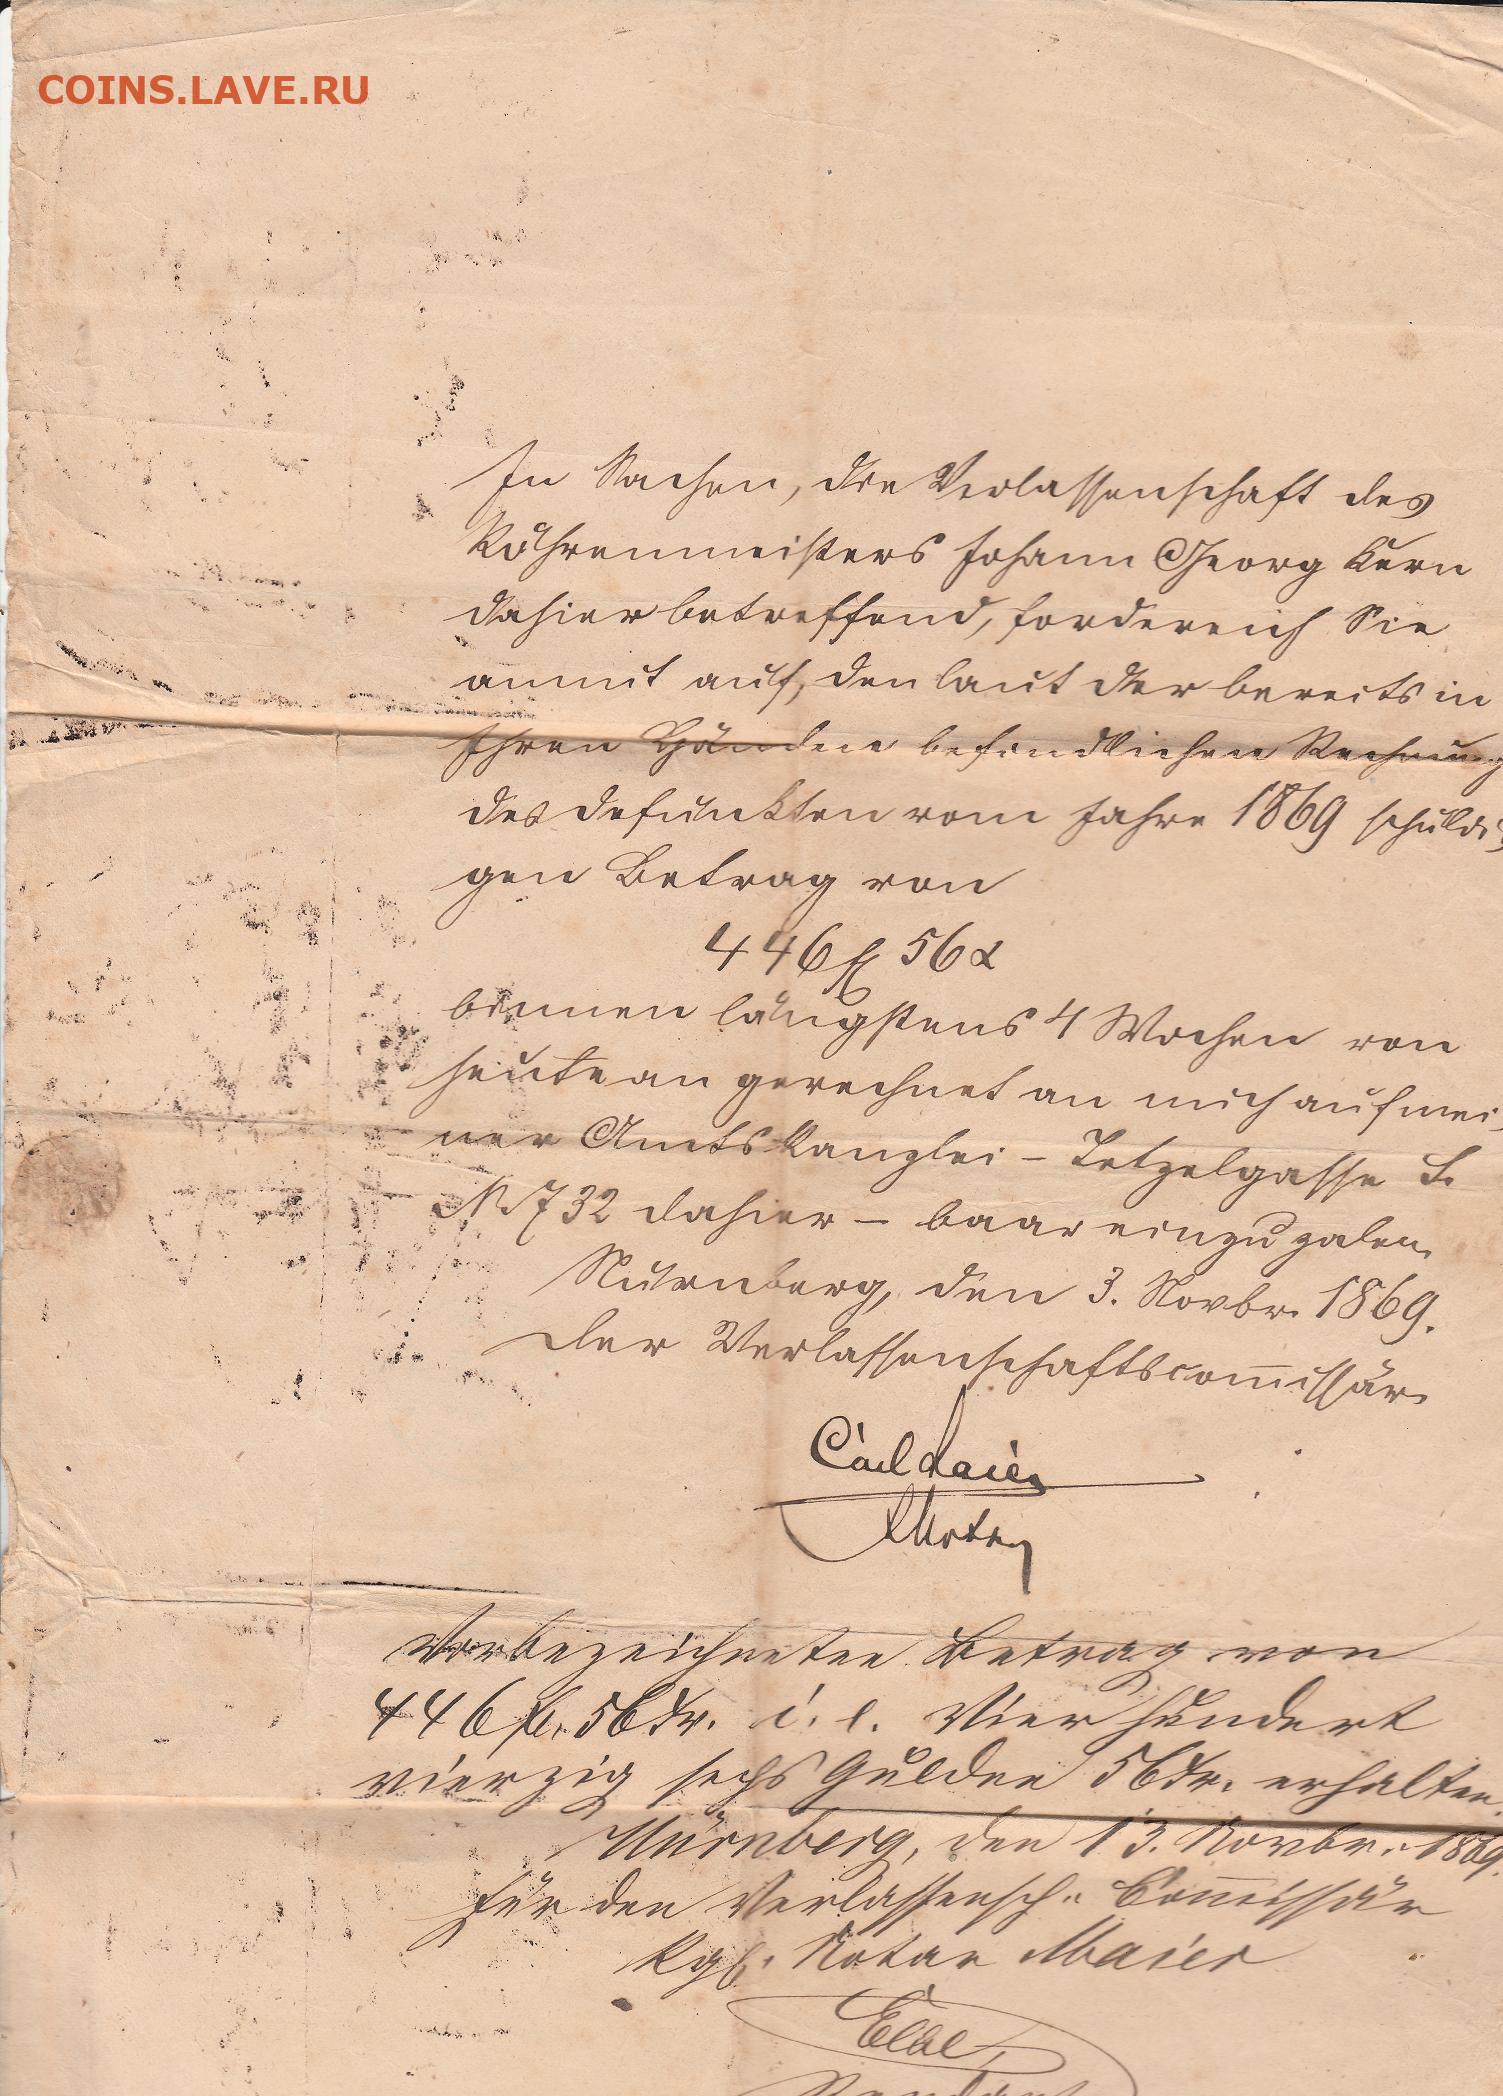 COINS.LAVE.RU
In Sachen, die Verlassenschaft des
Röhrenmeisters Johann Georg Kern
dahier betreffend, fordere ich Sie
anmit auf, den laut der bereits in
Ihren Händen befindlichen Rechnung
des Defunkten vom Jahre 1869 schuldi
gen Betrag von
446 f 56 x
binnen längstens 4 Wochen von
heute an gerechnet an mich auf mei-
ner Amtskanzlei – Tetzelgasse S.
N. 732 dahier – baar einzuzalen.
Nürnberg, den 3. Novbr. 1869.
Der Verlassenschaftscom̅issär.
Carl Maier
Notar
Vorbezeichneten Betrag von
446 fl. 56 kr. i. e. Vier hundert
vierzig sechs Gulden 56 kr. erhalten.
Nürnberg, den 13. Novbr. 1869.
Für den Verlassensch.- Com̅issär
Kgl. Notar Maier